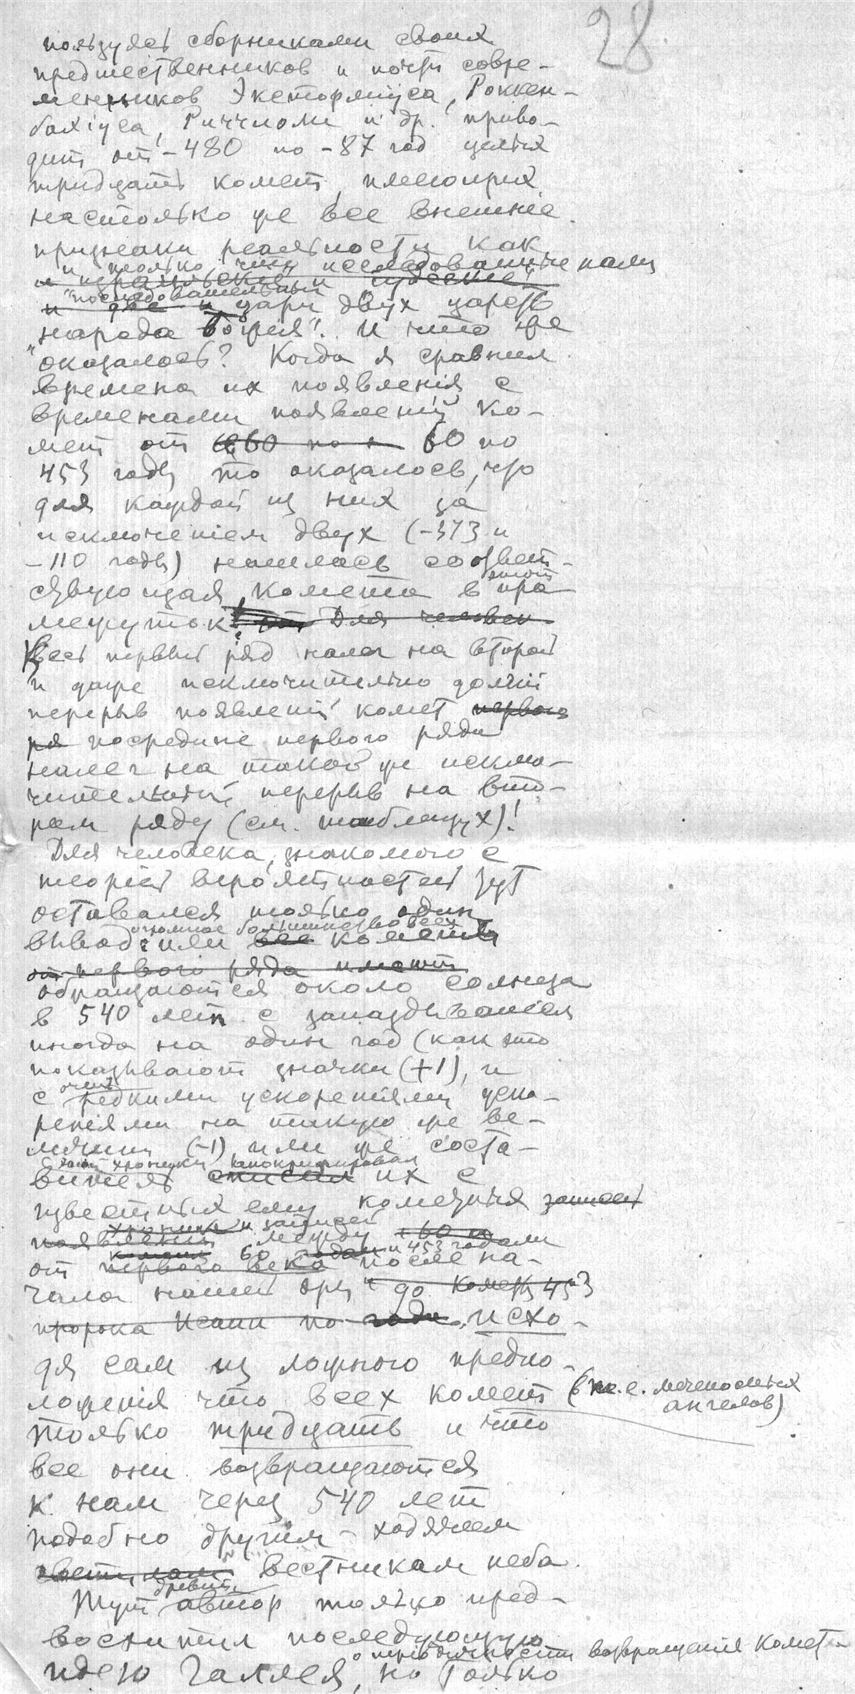 28
пользуясь сборниками своих
предшественников и почти совре-
менников Эксторміуса, Роккен-
бахіуса, Риччиоли и др. приво-
дит от -480 по -87 год целых
тридцать комет, имеющих
настолько же все внешние
признаки реальности как
и только что исследованные нами
"последовательный
и две и цари двух царств
народа божия". И что же
оказалось? Когда я сравнил
времена их появленія с
временами появленій ко-
мет от 60 по
453 годы то оказалось, что
для каждой из них за
исключеніем двух (-373 и
-110 годы) нашлась соответ-
ствующая комета в этот про-
межуток. Для человек
Весь первый ряд налег на второй
и даже исключительно долгій
перерыв появленій комет первого
ря посредине первого ряда
налег на такой же исклю-
чительный перерыв на вто-
ром ряду (см. таблицу)!
Для человека, знакомого с
теоріей вероятностей тут
оставался только один
огромное большинство всех
вывод: или все кометы
от первого ряда имеют
обращаются около солнца
в 540 лет с запаздываніем
иногда на один год (как это
показывают значки (+1), и
с очень редкими ускореніями уско-
реніями на такую же ве-
личину (-1) или же соста-
этой хроники апокрифировал
витель списал их с
известных ему кометных записей
хроника и записей
появленій между +60 и
комет 60 годами и 453 годами
от первого века после на-
чала нашей эры до кометы 453
пророка Исаии по года, исхо-
дя сам из ложного предпо-
ложенія что всех комет (т.е. меченосных
ангелов)
только тридцать и что
все они возвращаются
к нам через 540 лет
подобно другим ходячем
светилам вестникам неба.
Тут древній автор только пред-
восхитил последующую
идею Галлея о періодичности возвращения комет, но только